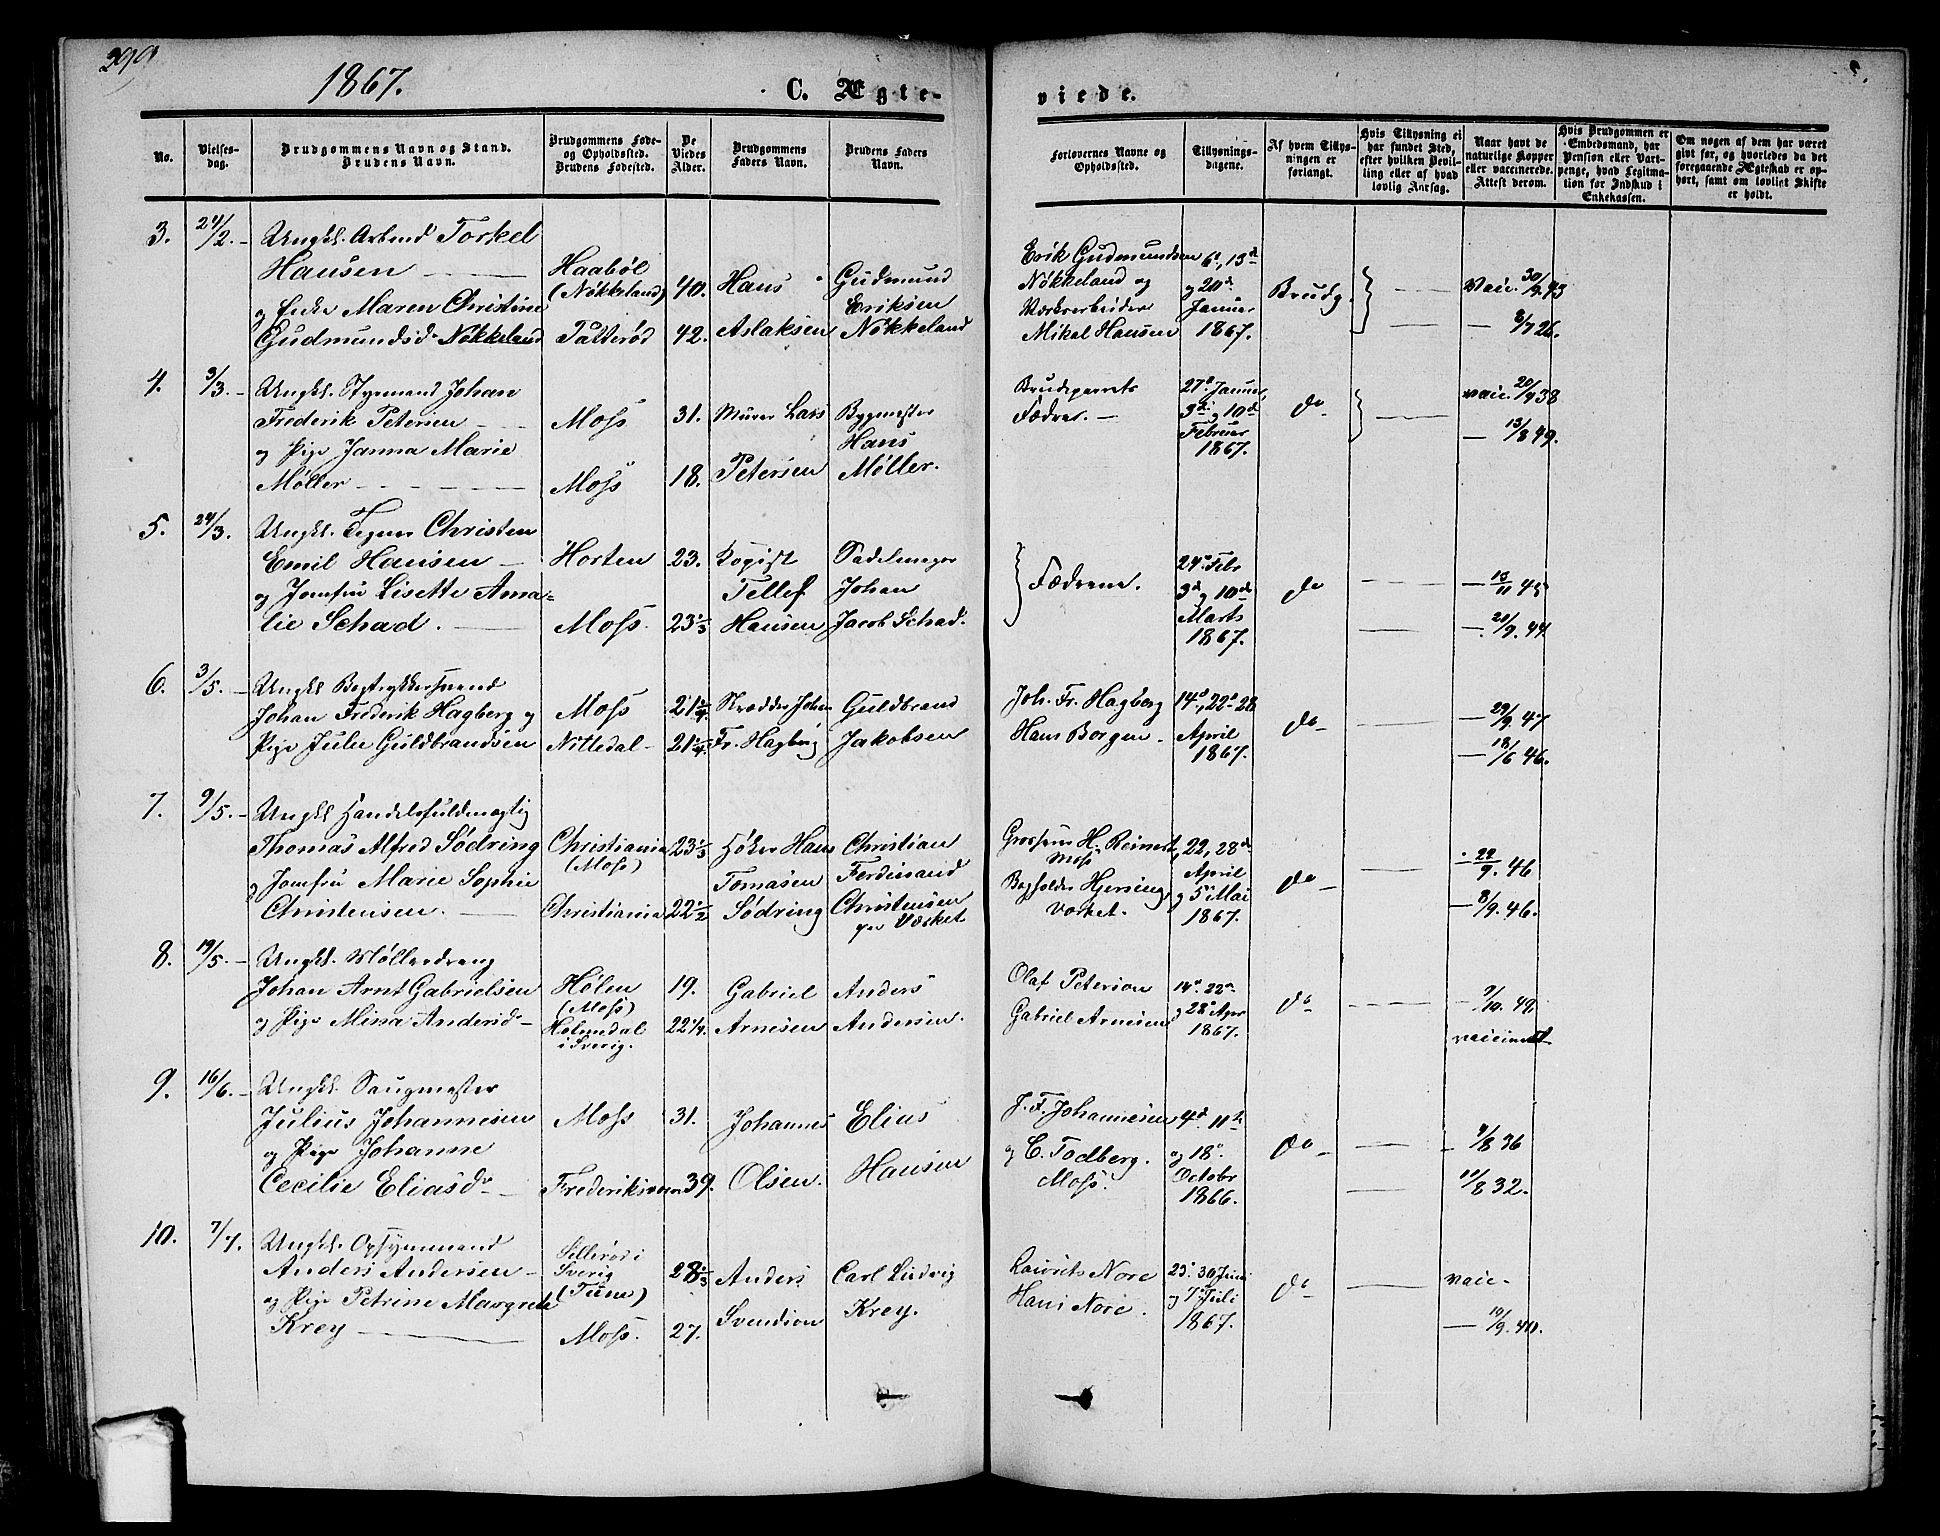 299
1867.
C. Ægte-
viede.
No.
Vielses-
dag.
Brudgommens Navn og Stand.
Brudens Navn.
Brudgommens Føde-
og Opholdssted.
Brudens Fødested.
De
Viedes
Alder.
Brudgommens
Faders Navn.
Brudens Faders
Navn.
Forlovernes Navne og
Opholdssted.
Tillysnings-
dagene.
Af hvem Tillys-
ningen er
forlangt.
Hvis Tillysning ei
har fundet Sted,
efter hvilken Bevil-
ling eller af hvad
lovlig Aarsag.
Naar havt de
naturlige Kopper
eller vaccinerede.
Attest derom.
Hvis Brudgommen er
Embedsmand, har
Pension eller Vart-
penge, hvad Legitima-
tion for Indskud i
Enkekassen.
Om nogen af dem har været
gift før, og hvorledes da det
foregaaende Ægteskab er op-
hørt, samt om lovligt Skifte
er holdt.
3. 24/2. - Ungkl. Arbmd Torkel
Hansen
og Enke Maren Christine
Gudmundsd. Nøkkeland
Haabøl
(Nøkkeland)
Patterød
40.
42.
Hans
Aslaksen
Gudmund
Eriksen
Nøkkeland
Erik Gudmundsen
Nøkkeland og
Værksarbeider
Mikal Hansen
6te, 13de
og 20de
Januar
1867.
Brudg.
vacc. 30/9 43
8/7 26.
4. 3/3. - Ungkl. Styrmand Johan
Frederik Petersen
og Pige Janna Marie
Møller
Moss
Moss
31.
18.
Murer Lars
Petersen
Bygmester
Hans
Møller.
Brudeparrets
Fædre.
27de Januar,
3die og 10de
Februar
1867.
do
vacc. 20/9 38
13/8 49.
5. 24/3. Ungkl. Christen
Emil Hansen
og Jomfru Lisette Ama-
lie Schad.
Horten
Moss.
23.
23 1/3
Tellef
Hansen
Sadelmager
Johan
Jacob Schad.
Fædrene.
24de Febr
3de og 10de
Marts
1867.
do
13/11 43
20/9. 44
6. 3/5. - Ungkl Bogtrykkersvend
Johan Frederik Hagberg og
Pige Julie Guldbrandsen
Moss
Nittedal
21 1/4
21 1/4
Skrædder Johan
Fr. Hagberg
Guldbrand
Jakobsen
Joh. Fr. Hagberg
Hans Borgen
14de, 22de 28
April
1867.
do
29/9. 47
18/6 46.
7. 9/5. - Ungkl Handelsfuldmægtig
Thomas Alfred Sødring
og Jomfru Marie Sophie
Christensen.
Christiania
(Moss)
Christiania
23 1/3
22 1/2
Høker Hans
Tomasen
Sødring
Christian
Ferdinand
Christensen
Værket
H. Reinert
Moss
Bogholder Hjersing,
Værket.
22, 28de
April
og 5te Mai
1867.
do
22/9. 46
8/9. 46.
8. 19/5. - Ungkl. Møllerdreng
Johan Arnt Gabrielsen
og Pige Mina Andersd.
Hølen
(Moss)
Holmedal
i Sverig.
19.
22 1/4.
Gabriel
Arnesen
Anders
Andersen.
Olaf Petersen
Gabriel Arnesen
14de 22de
og 28de Apr
1867.
do
9/10. 49.
vaccineret
9. 16/6. - Ungkl. Saugmester
Julius Johannesen
og Pige Johanne
Cecilie Eliasd.
Moss
Frederiksværn
31.
39.
Johannes
Olsen.
Elias
Hansen
J. F. Johannesen
og C. Todberg.
Moss.
4de 11te
og 18de
Octobr
1866.
do
4/8 36
11/8 32.
10. 7/7. Ungkl. Opsynmand
Anders Andersen
og Pige Petrine Margrete
Krey
Sellerød i
Sverig
(Tune)
Moss.
28 1/3
27.
Anders
Svendsen
Carl Ludvig
Krey.
Laurits Nore
Hans Nore.
23de 30 Juni
og 7de Juli
1867.
do
vacc.
10/9. 40.